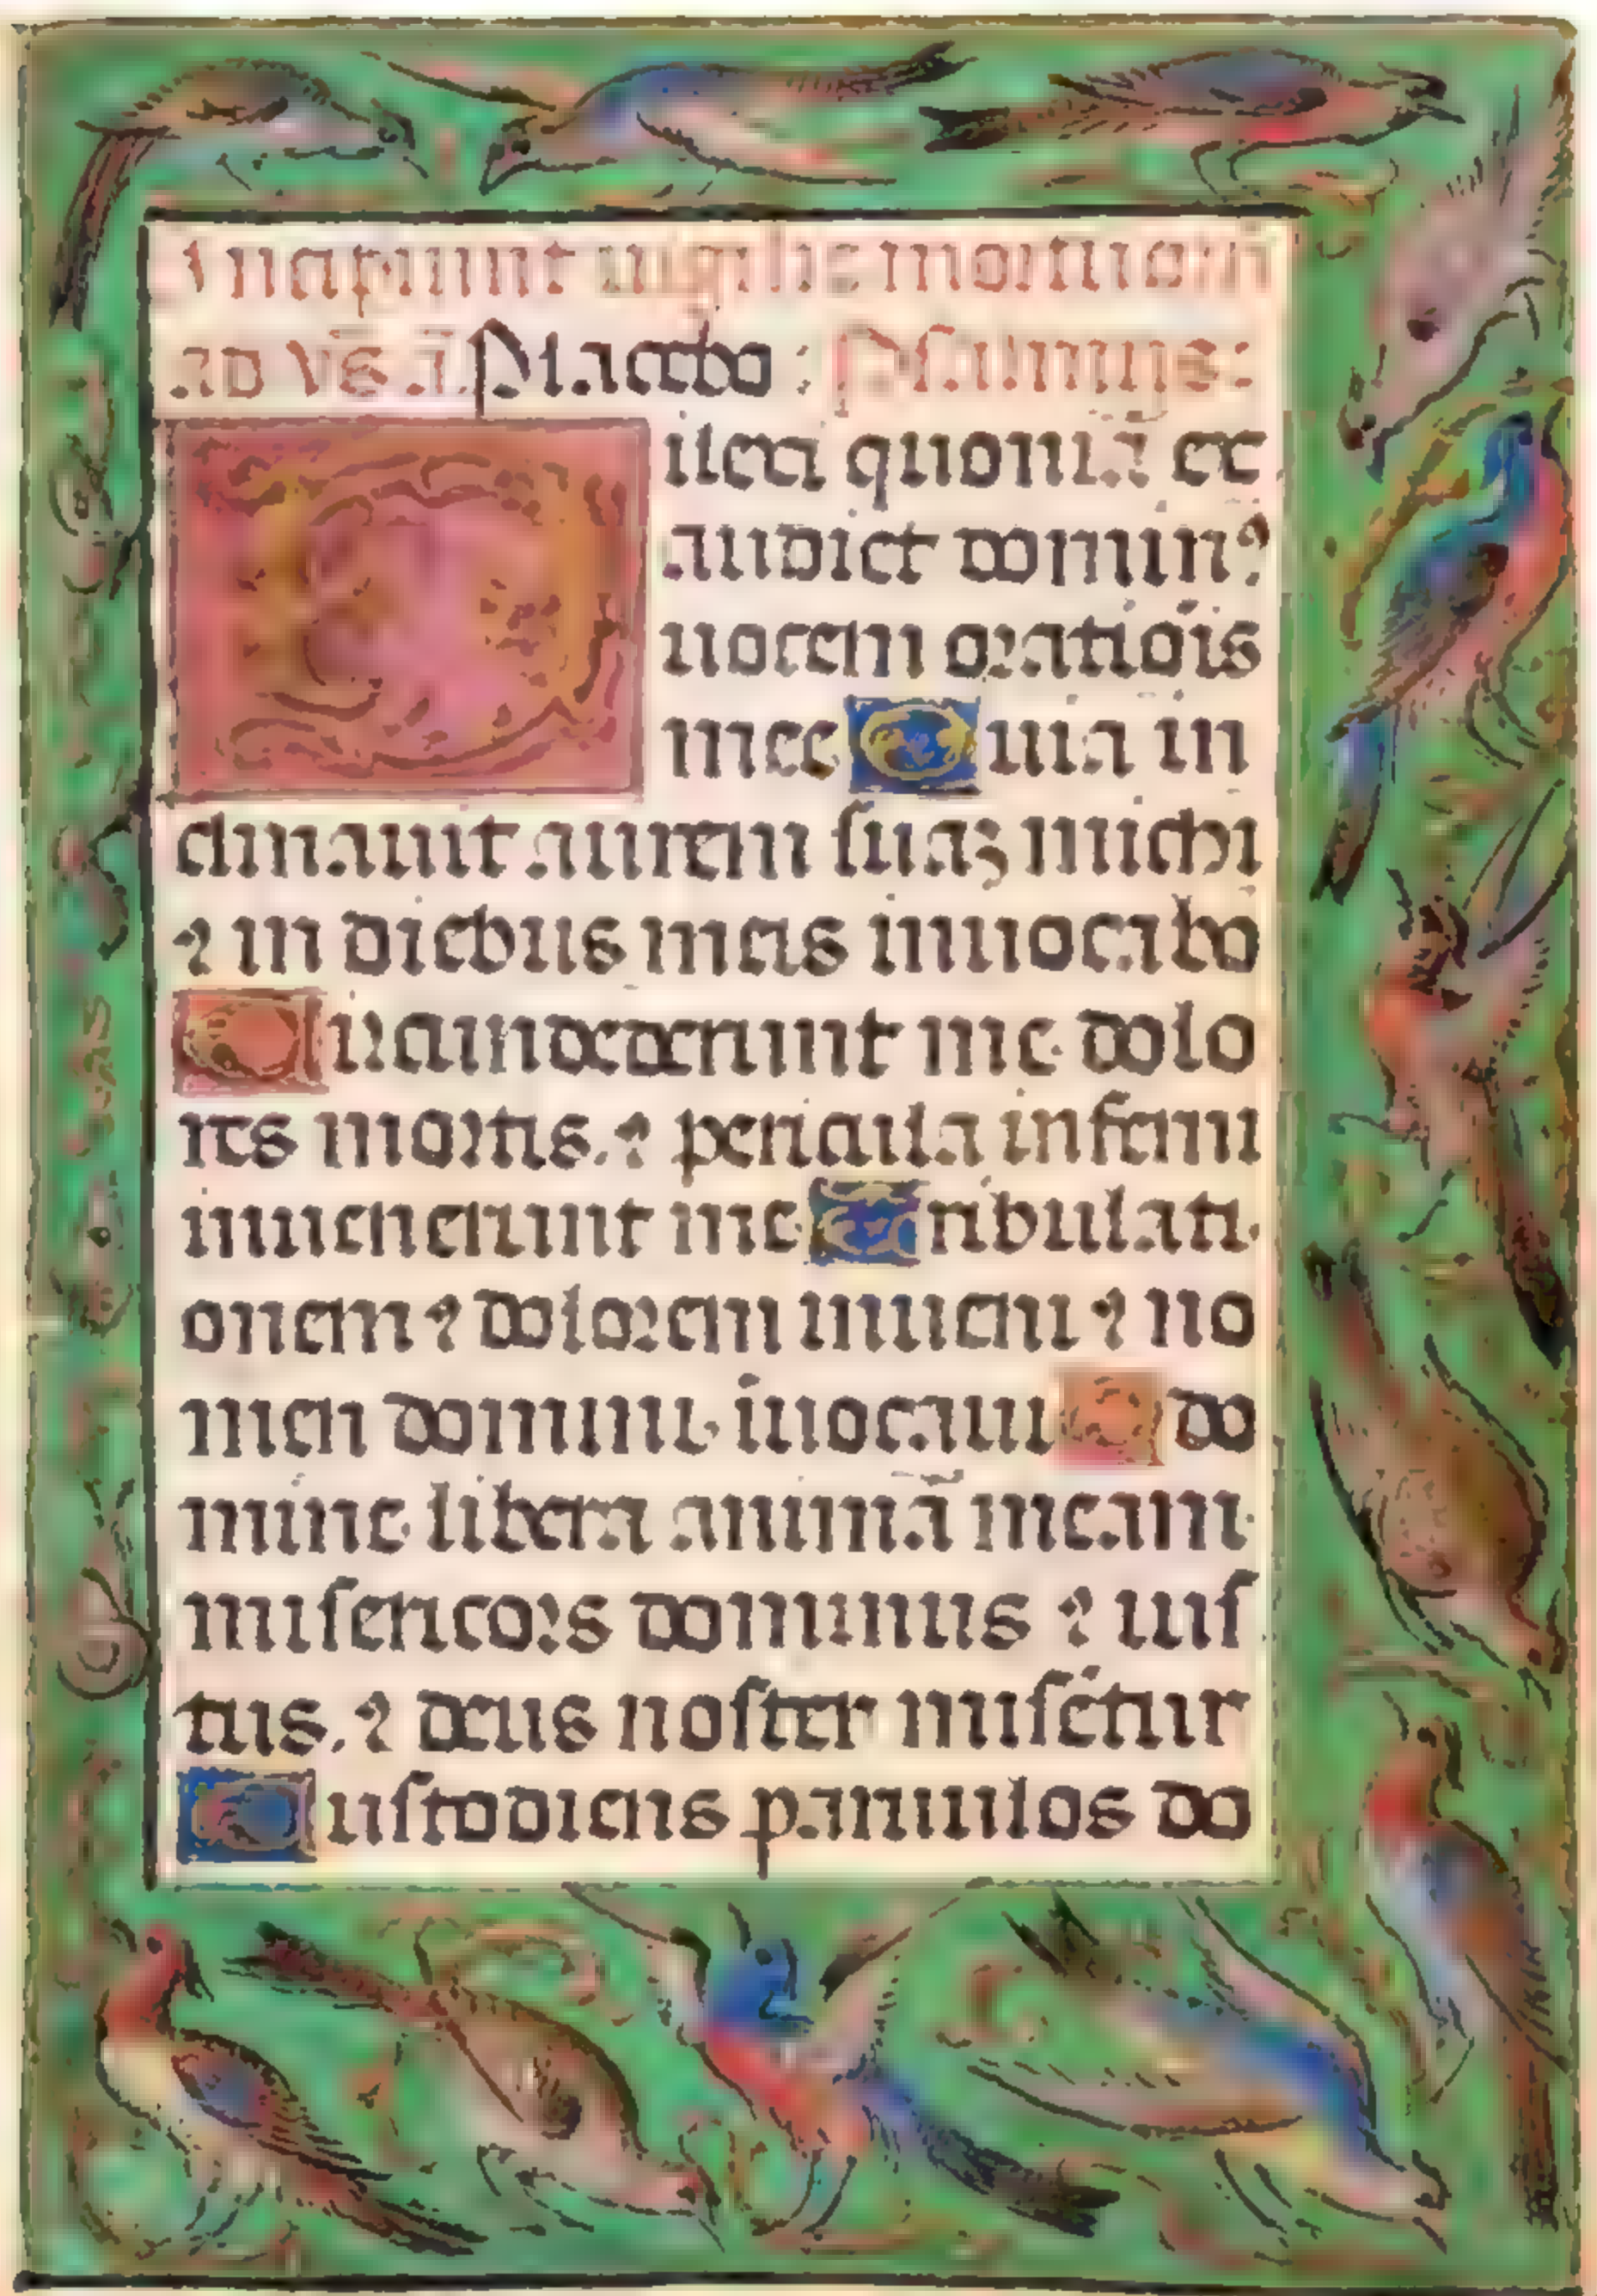 Incipiunt uigilie mortuorū
ad vs̄. ā. Placebo : Psalmus:
Dilexi quoniā ex
audiet domin⁹
uocem oratiōis
mee Quia in
clinauit aurem suaʒ michi
⁊ in diebus meis inuocabo
Circumdederunt me dolo
res mortis. ⁊ pericula inferni
inuenerunt me Tribulati
onem ⁊ dolorem inueni ⁊ no
men domini inuocaui O do
mine libera animā meam
misericors dominus ⁊ ius
tus. ⁊ deus noster misēt̄ur
Custodiens paruulos do